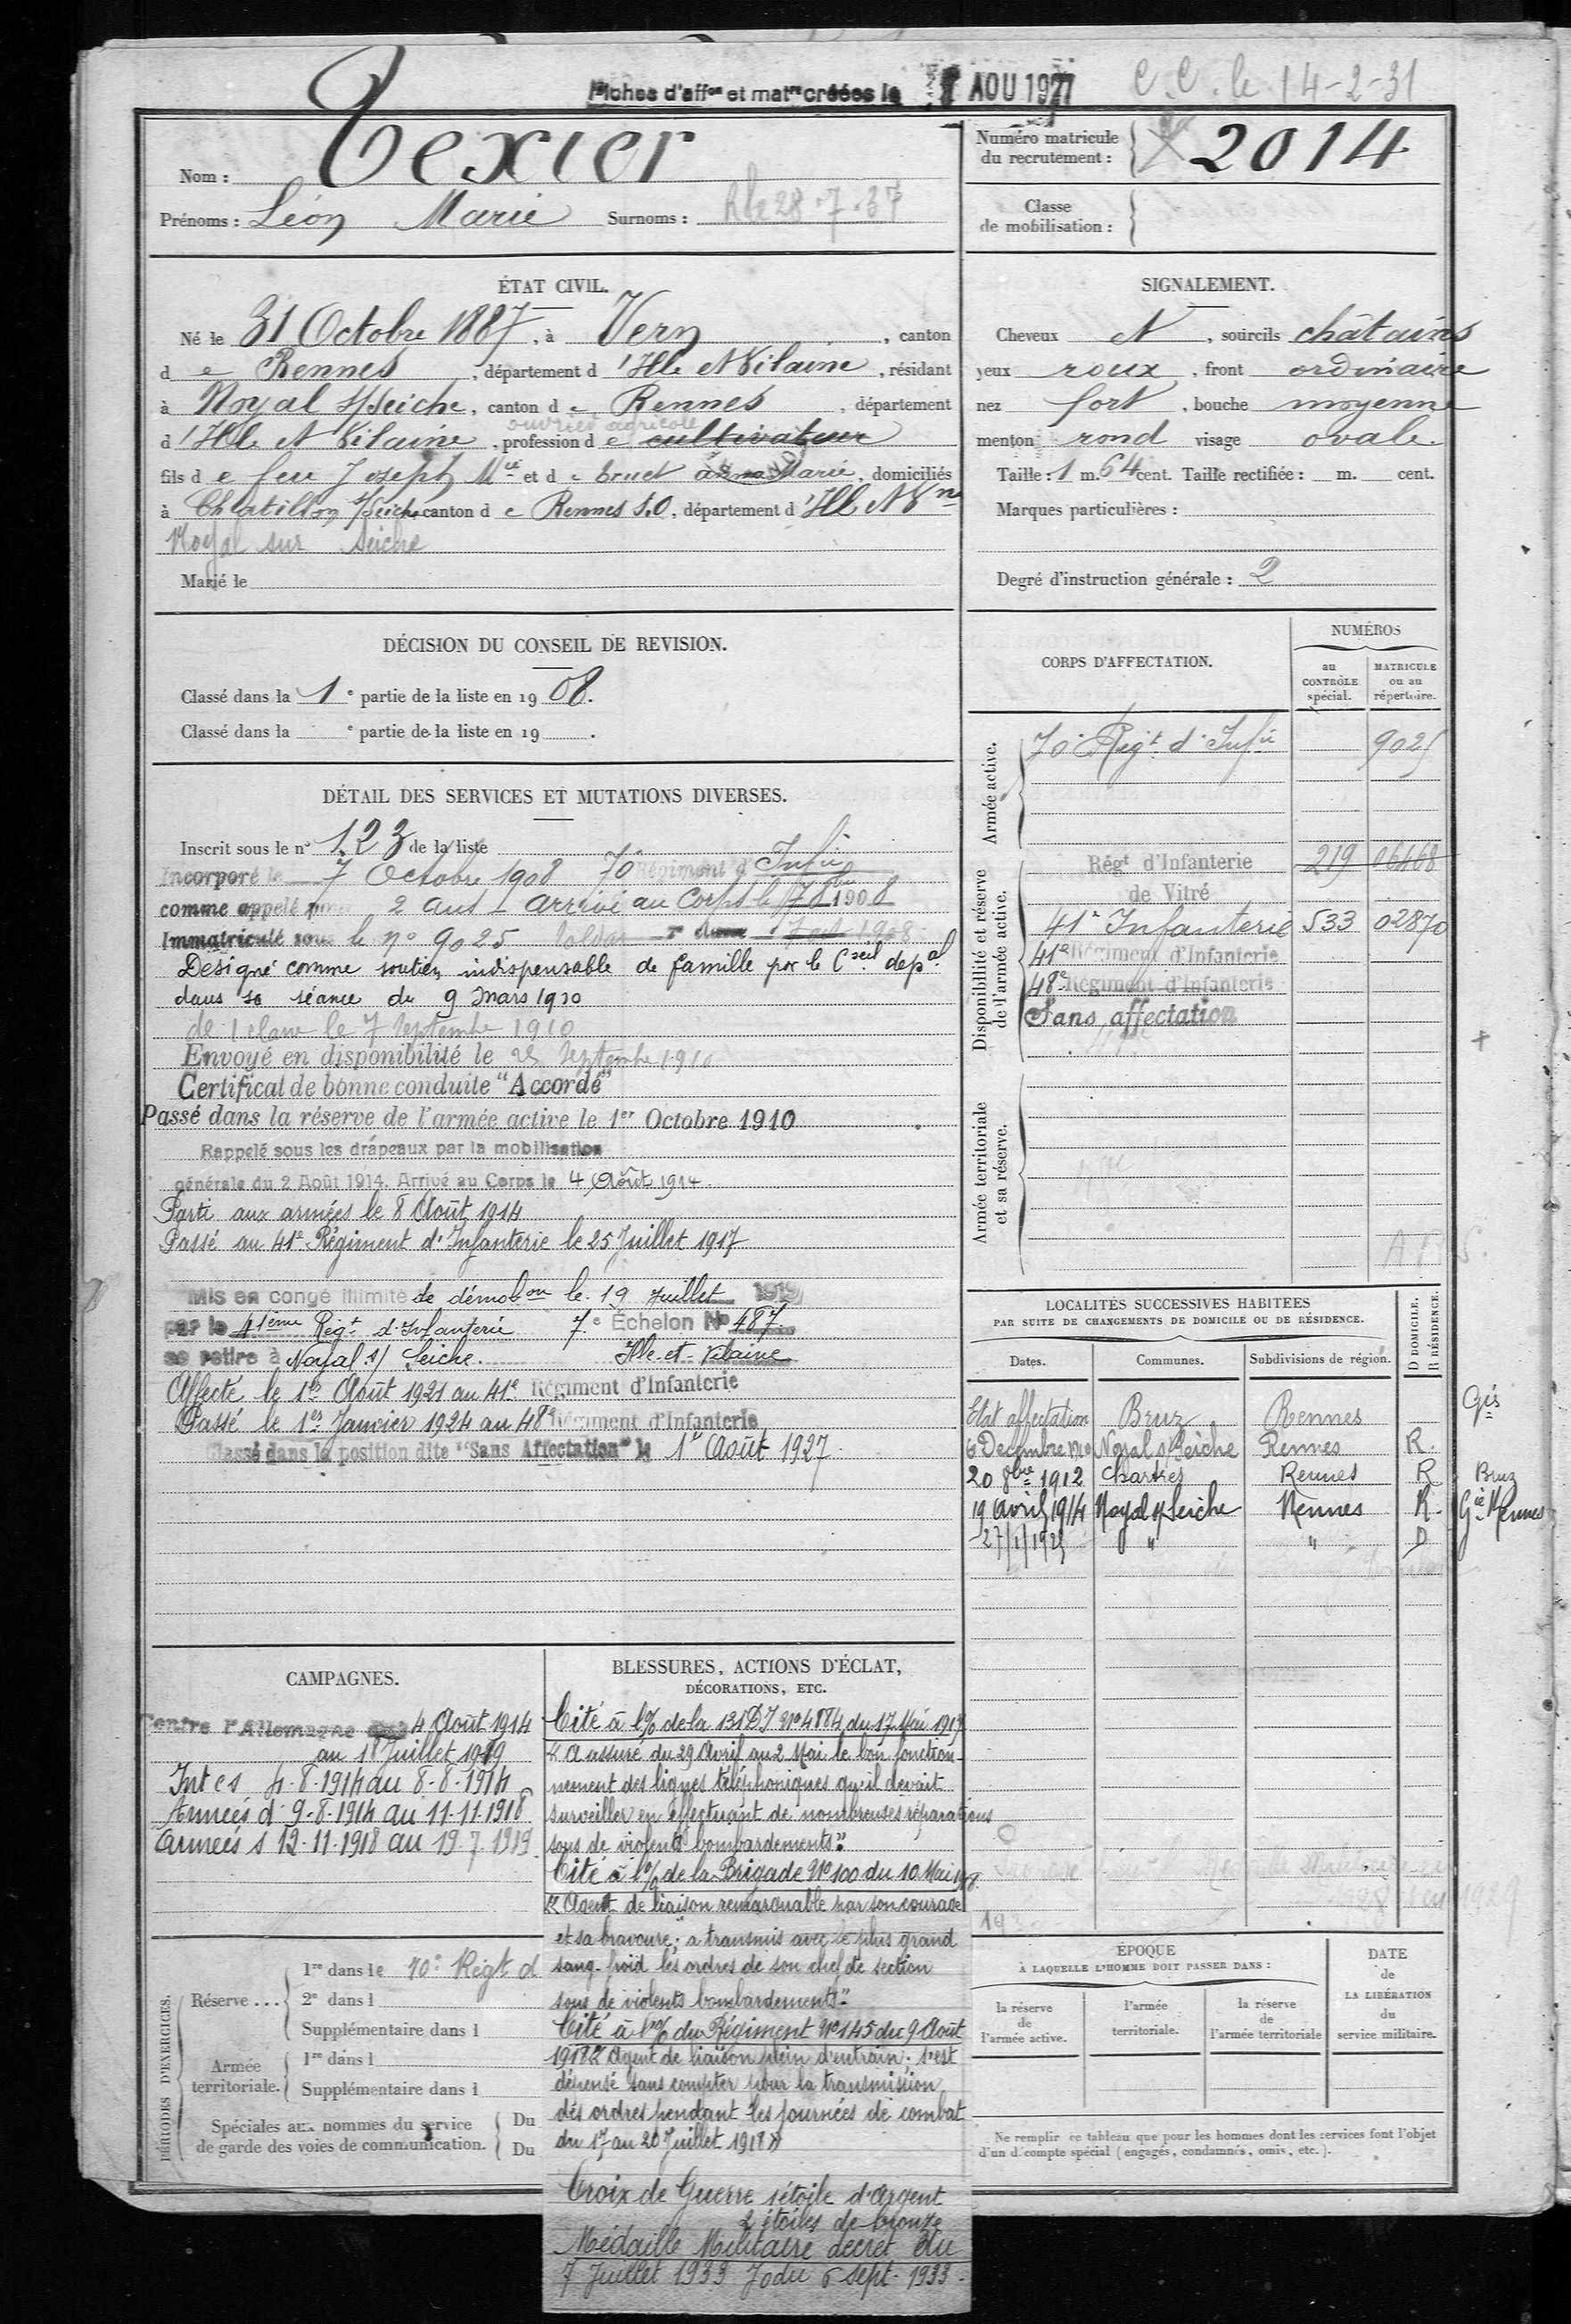 Fiches d'affon et matre créées le 1 AOU 1927
C.C. le 14-2-31
Nom : Texier
Prénoms : Léon Marie Surnoms :
28.7.37
Numéro matricule du recrutement : 2014
Classe de mobilisation :
ÉTAT CIVIL.
Né le 31 Octobre 1887, à Vern, canton
de Rennes, département d'Ille et Vilaine, résidant
à Noyal s/Seiche, canton de Rennes, département
ouvrier agricole
d'Ille et Vilaine, profession de cultivateur
fils de feu Joseph Mie et de Eruet Marie, domiciliés
à Chatillon s/Seiche canton de Rennes S.O, département d'Ille et Vne
Noyal sur Seiche
Marié le
SIGNALEMENT.
Cheveux N, sourcils châtains
yeux roux, front ordinaire
nez fort, bouche moyenne
menton rond visage ovale.
Taille : 1 m. 64 cent. Taille rectifiée : m. cent.
Marques particulières :
Degré d'instruction générale : 2
DÉCISION DU CONSEIL DE REVISION.
Classé dans la 1e partie de la liste en 1908.
Classé dans la e partie de la liste en 19 .
DÉTAIL DES SERVICES ET MUTATIONS DIVERSES.
Inscrit sous le no 123 de la liste
Incorporé le 7 Octobre 1908 70e Régiment d'Infie
comme appelé pour 2 ans - arrivé au Corps le 7 8bre 1908
Immatriculé sous le no 9025 soldat
Désigné comme soutien indispensable de famille par le Cseil depal
dans sa séance du 9 Mars 1910
de 1 classe le 7 Septembre 1910
Envoyé en disponibilité le 25 Septembre 1910
Certificat de bonne conduite "Accordé"
Passé dans la réserve de l'armée active le 1er Octobre 1910
Rappelé sous les drapeaux par la mobilisation
générale du 2 Août 1914. Arrivé au Corps le 4 Août 1914
Parti aux armées le 8 Août 1914
Passé au 41e Régiment d'Infanterie le 25 Juillet 1917
Mis en congé illimité de démobon le 19 Juillet 1919
par le 41ème Régt d'Infanterie 7e Échelon No 487
se retire à Noyal s/ Seiche. Ille et Vilaine
Affecté le 1er Août 1921 au 41e Régiment d'Infanterie
Passé le 1er Janvier 1924 au 48e Régiment d'Infanterie
Classé dans la position dite "Sans Affectation" le 1er Août 1927.
CORPS D'AFFECTATION.
NUMÉROS
au CONTRÔLE spécial.
MATRICULE ou au répertoire.
Armée active.
70e Régt d'Infie 9025
Disponibilité et réserve de l'armée active.
Régt d'Infanterie 219 06468
de Vitré
41e Infanterie 533 02870
41e Régiment d'Infanterie
48e Régiment d'Infanterie
Sans affectation
Armée territoriale et sa réserve.
LOCALITÉS SUCCESSIVES HABITÉES
PAR SUITE DE CHANGEMENTS DE DOMICILE OU DE RÉSIDENCE.
Dates. Communes. Subdivisions de région. D DOMICILE. R RÉSIDENCE.
Etat affectation Bruz Rennes
6 Decembre 1910 Noyal s/Seiche Rennes R.
20 8bre 1912 Chartres Rennes R Bruz
19 Avril 1914 Noyal s/Seiche Rennes R. Gie Rennes
27/1/1925 " " D
CAMPAGNES.
Contre l'Allemagne du 4 Août 1914
au 18 Juillet 1919
Int es 4-8-1914 au 8-8-1914
Armées d 9-8-1914 au 11-11-1918
Armées s 12-11-1918 au 19-7-1919.
BLESSURES, ACTIONS D'ÉCLAT,
DÉCORATIONS, ETC.
Cité à l'% de la 131 DI No 4884 du 17 Mai 1917
« A assuré du 29 Avril au 2 Mai le bon fonction-
nement des lignes téléphoniques qu'il devait
surveiller en effectuant de nombreuses réparations
sous de violents bombardements".
Cité à l'% de la Brigade No 100 du 10 Mai 1918.
« Agent de liaison remarquable par son courage
et sa bravoure; a transmis avec le plus grand
sang-froid les ordres de son chef de section
sous de violents bombardements".
Cité à l'% du Régiment No 145 du 9 Août
1918 « Agent de liaison plein d'entrain; s'est
dépensé sans compter pour la transmission
des ordres pendant les journées de combat
du 17 au 20 Juillet 1918 »
Croix de Guerre 1 étoile d'Argent
2 étoiles de bronze
Médaille Militaire décret du
7 Juillet 1933 Jo du 6 sept. 1933.
PÉRIODES D'EXERCICES.
Réserve ...
1re dans le 70e Régt d
2e dans l
Supplémentaire dans l
Armée territoriale.
1re dans l
Supplémentaire dans l
Spéciales aux hommes du service
de garde des voies de communication.
Du
Du
ÉPOQUE
À LAQUELLE L'HOMME DOIT PASSER DANS :
la réserve de l'armée active.
l'armée territoriale.
la réserve de l'armée territoriale
DATE de LA LIBÉRATION du service militaire.
Ne remplir ce tableau que pour les hommes dont les services font l'objet
d'un décompte spécial (engagés, condamnés, omis, etc.).